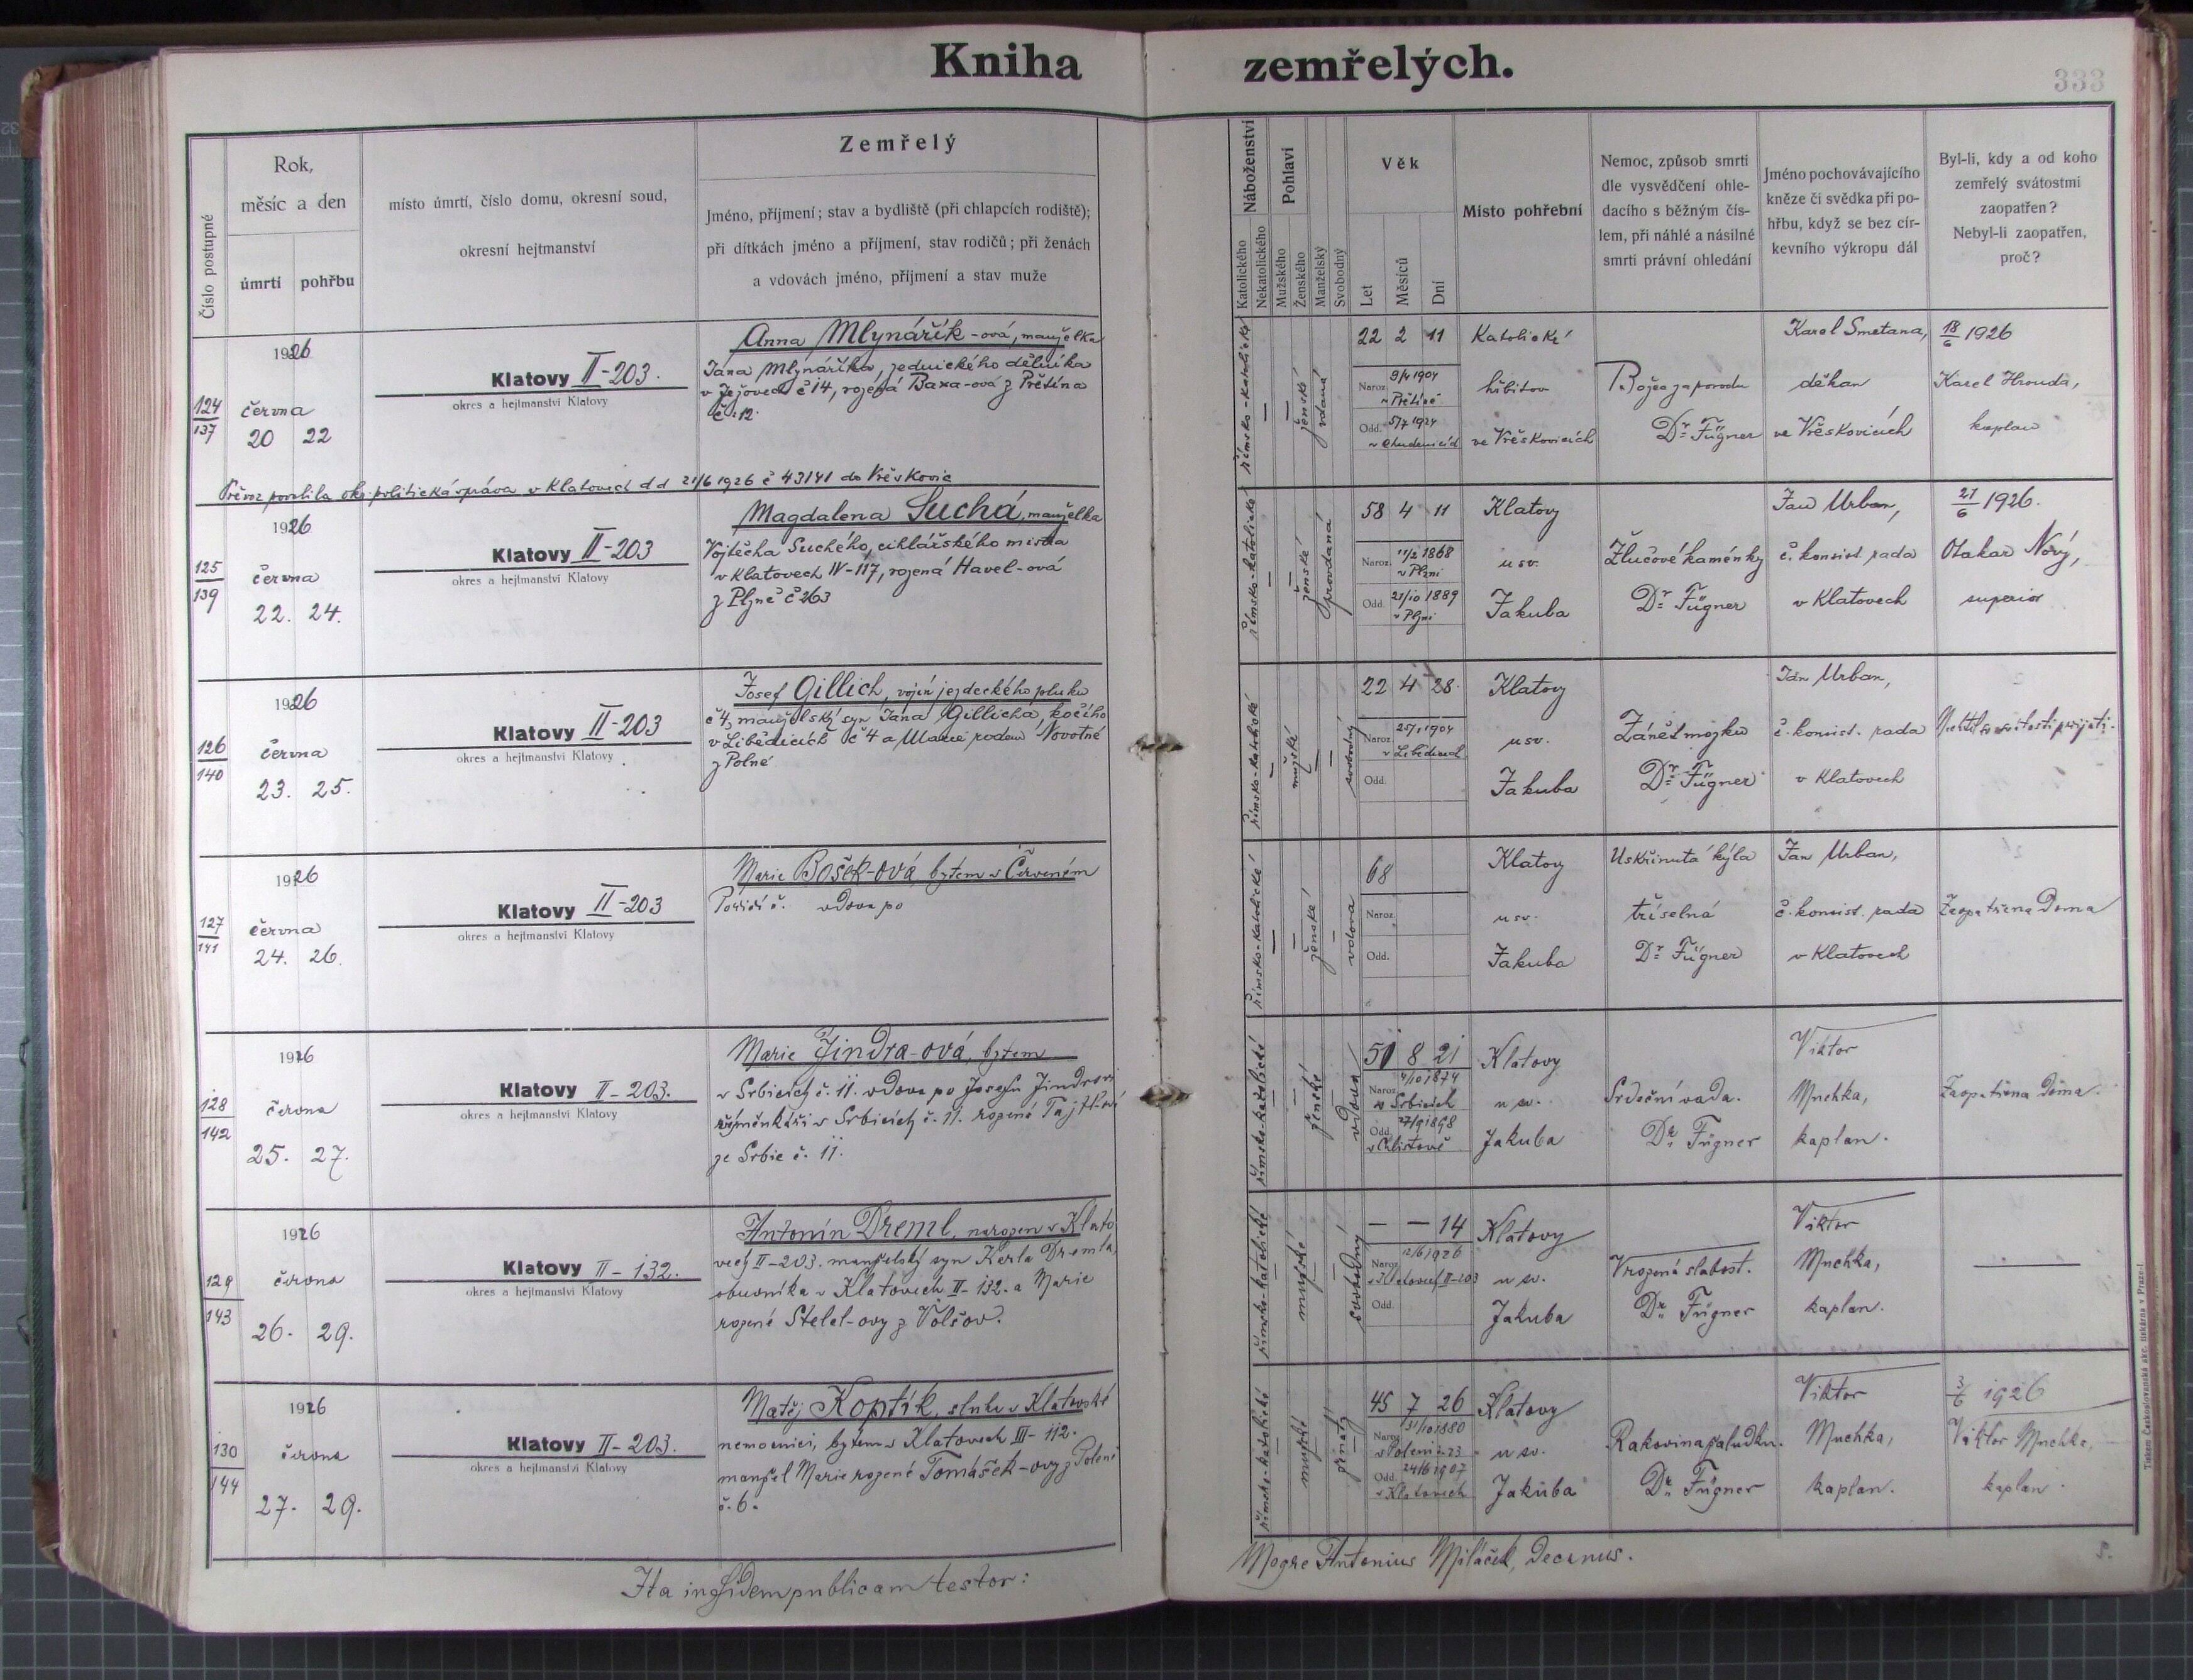 Kniha zemřelých.
333
Číslo postupné
Rok,
měsíc a den
úmrtí pohřbu
místo úmrtí, číslo domu, okresní soud,
okresní hejtmanství
Zemřelý
Jméno, příjmení; stav a bydliště (při chlapcích rodiště);
při dítkách jméno a příjmení, stav rodičů; při ženách
a vdovách jméno, příjmení a stav muže
Náboženství
Katolického
Nekatolického
Pohlaví
Mužského
Ženského
Manželský
Svobodný
Věk
Let
Měsíců
Dní
Místo pohřební
Nemoc, způsob smrti
dle vysvědčení ohle-
dacího s běžným čís-
lem, při náhlé a násilné
smrti právní ohledání
Jméno pochovávajícího
kněze či svědka při po-
hřbu, když se bez cír-
kevního výkropu dál
Byl-li, kdy a od koho
zemřelý svátostmi
zaopatřen?
Nebyl-li zaopatřen,
proč?
124
137
1926
června
20 22
Klatovy II-203.
okres a hejtmanství Klatovy
Anna Mlynářík-ová, manželka
Jana Mlynáříka, zednického dělníka
v Ježovech č 14, rozená Baxa-ová z Přetína
č. 12.
římsko-katolické
ženské
vdaná
22 2 11
Naroz. 9/4 1904
v Přetíně
Odd. 5/7 1924
v Chudenicích
Katolický
hřbitov
ve Vřeskovicích
Dr. Fügner
Karel Smetana,
děkan
ve Vřeskovicích
18/6 1926
Karel Hrouda,
kaplan
Převoz povolila okr. politická správa v Klatovech dd 21/6 1926 č 43141 do Vřeskovic
125
139
1926
června
22. 24.
Klatovy II-203
okres a hejtmanství Klatovy
Magdalena Suchá, manželka
Vojtěcha Suchého, cihlářského mistra
v Klatovech IV-117, rozená Havel-ová
z Plzně č 263
římsko-katolické
ženské
provdaná
58 4 11
Naroz. 11/2 1868
v Plzni
Odd. 21/10 1889
v Plzni
Klatovy
u sv.
Jakuba
Žlučové kaménky
Dr. Fügner
Jan Urban,
č. konsist. rada
v Klatovech
21/6 1926.
Otakar Nový,
superior
126
140
1926
června
23. 25.
Klatovy II-203
okres a hejtmanství Klatovy
Josef Gillich, vojín jezdeckého pluku
č 4, manželský syn Jana Gillicha, kočího
v Libědicích č 4 a Marie rodem Novotné
z Polné
římsko-katolické
mužské
svobodný
22 4 28.
Naroz. 25/1 1904
v Libědicích
Odd.
Klatovy
u sv.
Jakuba
Zánět mozku
Dr. Fügner
Jan Urban,
č. konsist. rada
v Klatovech
127
141
1926
června
24. 26.
Klatovy II-203
okres a hejtmanství Klatovy
Marie Bošek-ová, bytem v Červeném
Poříčí č. vdova po
římsko-katolické
ženské
vdova
68
Naroz.
Odd.
Klatovy
u sv.
Jakuba
Uskřinutá kýla
tříselná
Dr. Fügner
Jan Urban,
č. konsist. rada
v Klatovech
Zaopatřena doma
128
142
1926
června
25. 27.
Klatovy II-203.
okres a hejtmanství Klatovy
Marie Jindra-ová, bytem
v Srbicích č. 11. vdova po Josefu Jindrovi
výměnkáři v Srbicích č. 11. rozená
ze Srbic č. 11.
římsko-katolické
ženské
vdova
51 8 21
Naroz. 4/10 1874
v Srbicích
Odd. 27/9 1898
v Chlistově
Klatovy
u sv.
Jakuba
Srdeční vada.
Dr. Fügner
Viktor
Muchka,
kaplan.
Zaopatřena doma.
129
143
1926
června
26. 29.
Klatovy II-132.
okres a hejtmanství Klatovy
Antonín Dreml, narozen v Klato
vech II-203. manželský syn Karla Dremla,
obuvníka v Klatovech II-132. a Marie
rozené Stelcl-ovy z Volšov.
římsko-katolické
mužské
svobodný
— — 14
Naroz. 12/6 1926
v Klatovech II-203
Odd.
Klatovy
u sv.
Jakuba
Vrozená slabost.
Dr. Fügner
Viktor
Muchka,
kaplan.
—
130
144
1926
června
27. 29.
Klatovy II-203.
okres a hejtmanství Klatovy
Matěj Koptík, sluha v Klatovské
nemocnici, bytem v Klatovech III-112.
manžel Marie rozené Tomášek-ovy z Poleně
č. 6.
římsko-katolické
mužské
ženatý
45 7 26
Naroz. 31/10 1880
v Poleni č 23
Odd. 24/6 1907
v Klatovech
Klatovy
u sv.
Jakuba
Rakovina žaludku.
Dr. Fügner
Viktor
Muchka,
kaplan.
3/6 1926
Viktor Muchka,
kaplan.
Ita in fidem publicam testor:
Antonius Miláček, decanus.
Tiskem Československé akc. tiskárny v Praze-I.